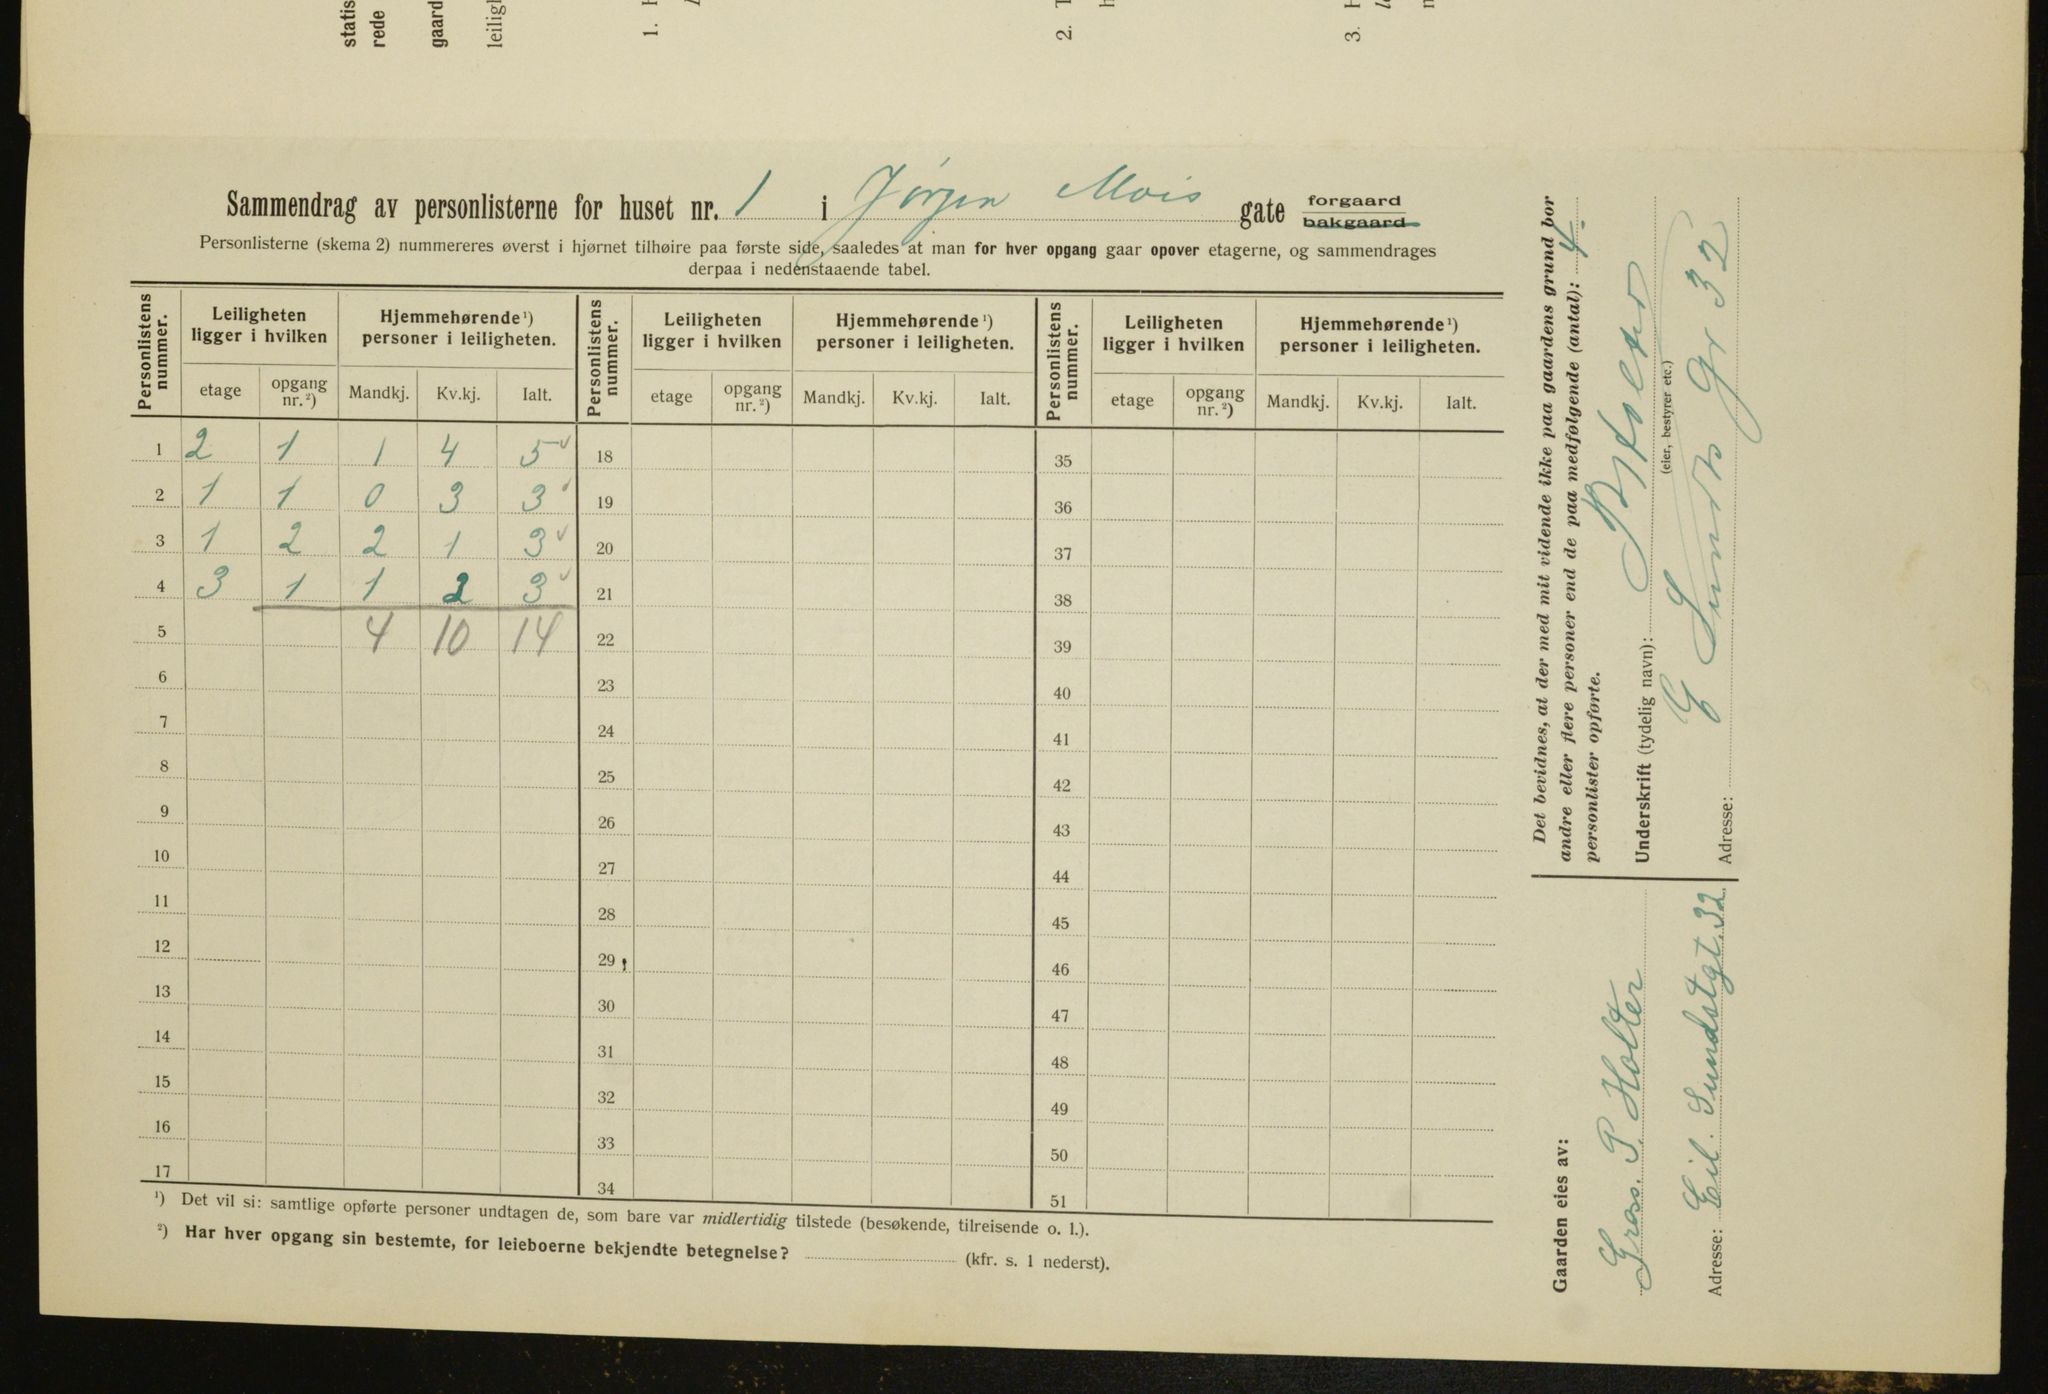 statis
rede
gaard
leiligh
1. H
2. T
h
3. H
le
n
Sammendrag av personlisterne for huset nr. 1 i Jørgen Mois gate forgaard
bakgaard
Personlisterne (skema 2) nummereres øverst i hjørnet tilhøire paa første side, saaledes at man for hver opgang gaar opover etagerne, og sammendrages
derpaa i nedenstaaende tabel.
Personlistens nummer. Leiligheten ligger i hvilken Hjemmehørende ¹) personer i leiligheten. Personlistens nummer. Leiligheten ligger i hvilken Hjemmehørende ¹) personer i leiligheten. Personlistens nummer. Leiligheten ligger i hvilken Hjemmehørende ¹) personer i leiligheten.
etage opgang nr. ²) Mandkj. Kv.kj. Ialt. etage opgang nr. ²) Mandkj. Kv.kj. Ialt. etage opgang nr. ²) Mandkj. Kv.kj. Ialt.
1 2 1 1 4 5 18 35
2 1 1 0 3 3 19 36
3 1 2 2 1 3 20 37
4 3 1 1 2 3 21 38
5 4 10 14 22 39
6 23 40
7 24 41
8 25 42
9 26 43
10 27 44
11 28 45
12 29 46
13 30 47
14 31 48
15 32 49
16 33 50
17 34 51
¹) Det vil si: samtlige opførte personer undtagen de, som bare var midlertidig tilstede (besøkende, tilreisende o. l.).
²) Har hver opgang sin bestemte, for leieboerne bekjendte betegnelse? (kfr. s. 1 nederst).
Det bevidnes, at der med mit vidende ikke paa gaardens grund bor
andre eller flere personer end de paa medfølgende (antal): 4.
personlister opførte.
Underskrift (tydelig navn): P Holter
(eier, bestyrer etc.)
Adresse: E Sundts Gt 32
Gaarden eies av:
Gross. P. Holter
Adresse: Eil. Sundstgt. 32